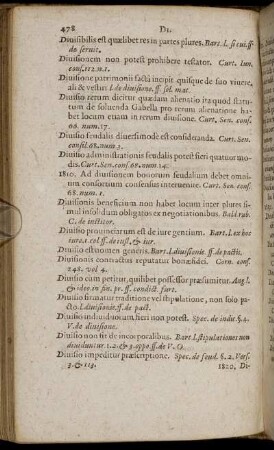 478 DI.
Diuisibilis est quælibet res in partes plures. Bart. l. si cui. ff.
de seruit.
Diuisionem non potest prohibere testator. Curt. Iun.
cons. 112. n. 1.
Diuisione patrimonij facta incipit quisque de suo viuere,
ali & vestiri. l. de diuisione. ff. sol. mat.
Diuisio rerum dicitur quædam alienatio ita quod statu-
tum de soluenda Gabella pro rerum alienatione ha-
bet locum etiam in rerum diuisione. Curt. Sen. cons.
66. num. 17.
Diuisio feudalis diuersimode est consideranda. Curt. Sen.
consil. 68. num. 3.
Diuisio administrationis feudalis potest fieri quatuor mo-
dis. Curt. Sen. cons. 68. num. 14.
1810. Ad diuisionem bonorum feudalium debet omni-
um consortium consensus interuenire. Curt. Sen. cons.
68. num. 1.
Diuisionis beneficium non habet locum inter plures si-
mul insolidum obligatos ex negotiationibus. Bald. rub.
C. de institor.
Diuisio prouinciarum est de iure gentium. Bart. l. ex hoc
iure. 1. col. ff. de iust. & iur.
Diuisio est nomen generis. Bart. l. diuisionis. ff. de pactis.
Diuisionis contractus reputatur bonæ fidei. Corn. cons.
248. vol. 4.
Diuisio cum petitur, quilibet possessor præsumitur. Ang. l.
& ideo. in fin. pr. ff. condict. furt.
Diuisio firmatur traditione vel stipulatione, non solo pa-
cto. l. diuisionis. ff. de pact.
Diuisio indiuiduorum fieri non potest. Spec. de indu. §. 4.
V. de diuisione.
Diuisio non fit de incorporalibus. Bart. l. stipulationes non
diuiduntur. 1. 2. & 3. oppo. ff. de V. O.
Diuisio impeditur præscriptione. Spec. de feud. §. 2. Vers.
3. & 113. 1820. Di-